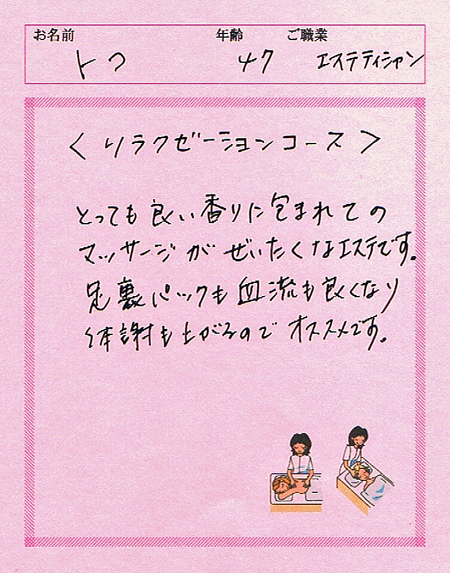 お名前 年齢 ご職業
トワ 47 エステティシャン
<リラクゼーションコース>
とっても良い香りに包まれての
マッサージがぜいたくなエステです。
足裏パックも血流も良くなり
体謝も上がるのでオススメです。